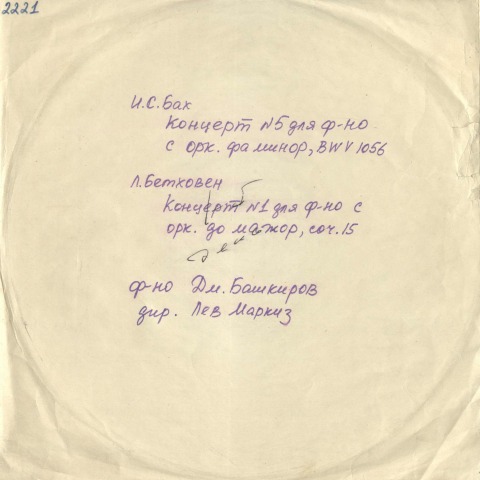 2221
И.С. Бах
Концерт №5 для ф-но
с орк. фа минор, BWV 1056
Л. Бетховен
Концерт №1 для ф-но с
орк. до мажор, соч. 15
ф-но Дм. Башкиров
дир. Лев Маркиз